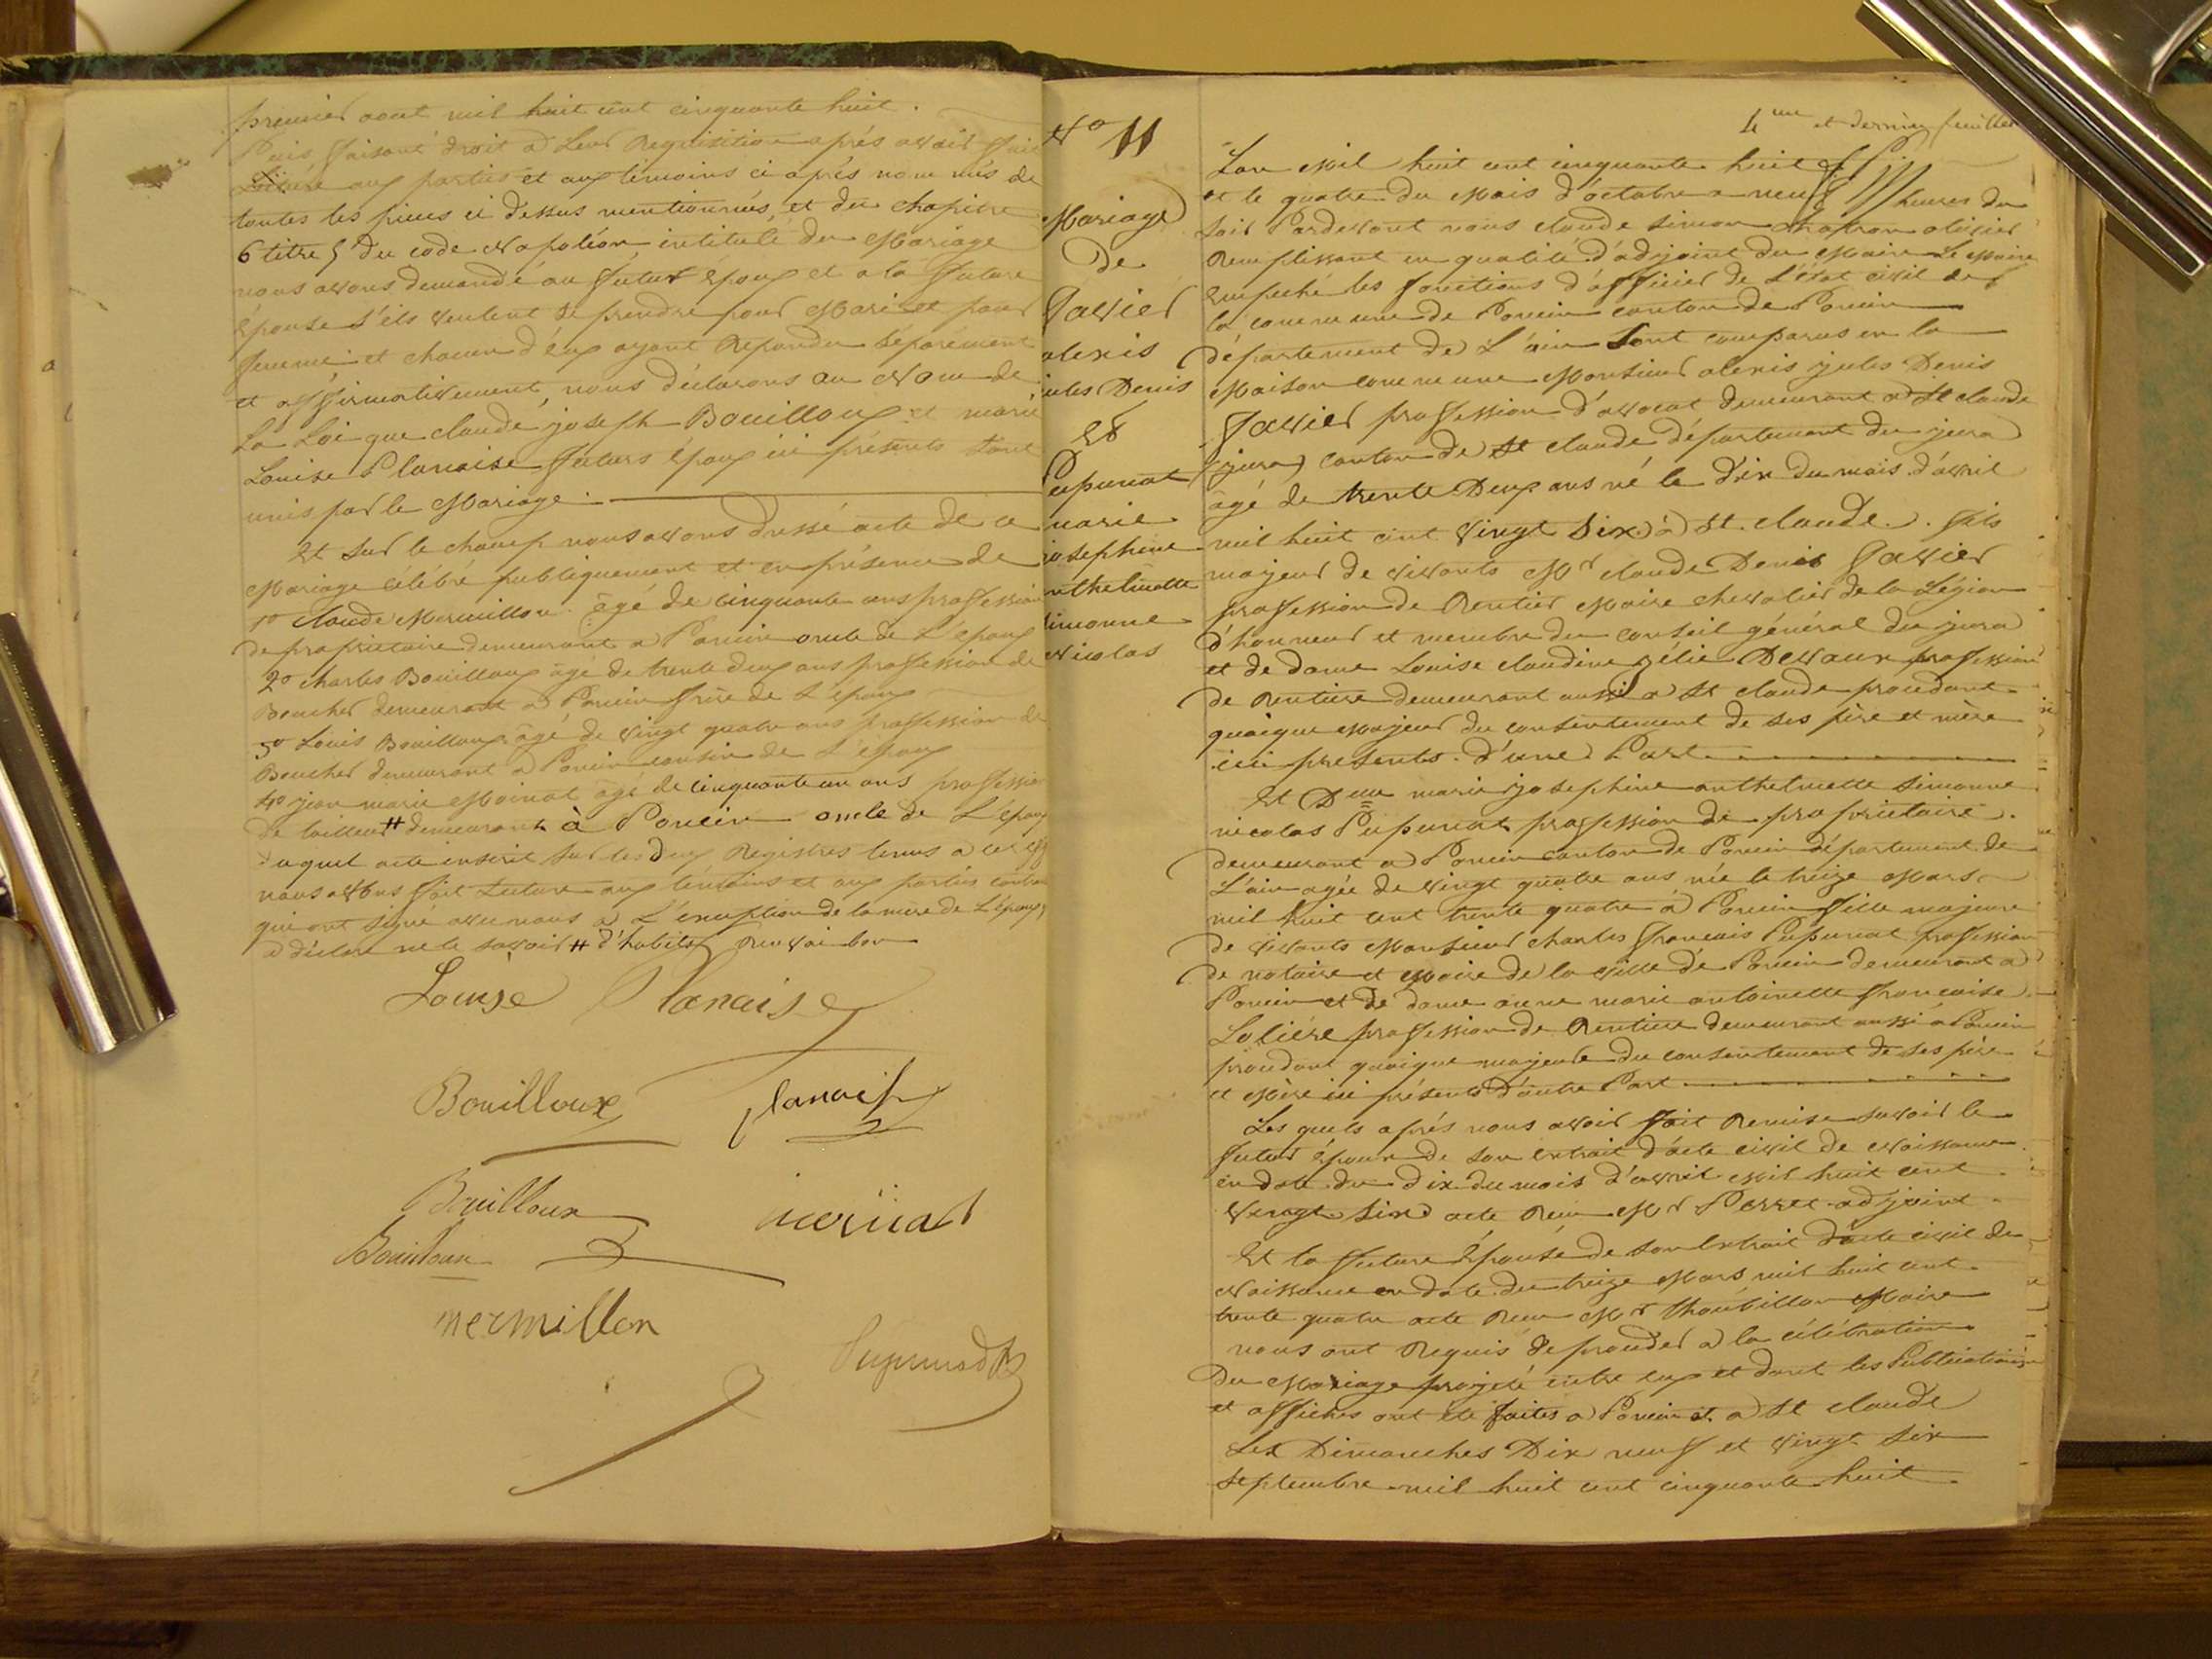 premier aout mil huit cent cinquante huit.
Puis, faisant droit a Leur Requisition aprés avoir fait
Lecture aux parties et aux témoins ci aprés nommés de
toutes les pieces ci dessus mentionnées, et du chapitre
6 titre 5 du code Napoléon intitulé du Mariage
nous avons demandé au futur Epoux et a la future
Epouse s'ils veulent se prendre pour Mari et pour
femme et chacun d'eux ayant Repondu séparément
et affirmativement, nous déclarons au Nom de
La Loi que claude joseph Bouilloux et marie
Louise Planaise futurs Epoux ici présents sont
unis par le Mariage.
Et sur le champ nous avons dressé acte de ce
Mariage célébré publiquement et en présence de
1º claude Mermillon âgé de cinquante ans profession
de propriétaire demeurant a Poncin oncle de L'epoux
2º charles Bouilloux âgé de trente deux ans profession de
Boucher demeurant a Poncin frère de L'epoux
3º Louis Bouilloux âgé de vingt quatre ans profession de
Boucher demeurant a Poncin cousin de L'epoux
4º jean marie Moinat âgé de cinquante un ans profession
de tailleur # demeurant à Poncin oncle de L'épouse
Duquel acte inscrit sur les deux Registres tenus a cet
nous avons fait Lecture aux témoins et aux parties
qui ont signé avec nous a L'exception de la mère de L'épouse
a déclaré ne le savoir # d'habits Renvoi bon
Louise Planaise
Bouilloux planaise
Bouilloux
Bouilloux
mermillon
4me et dernier feuillet
Nº 11
Mariage
de
Gavier
alexis
jules Denis
Et
Pupunat
marie
josephine
anthelmette
simonne
Nicolas
Lan Mil huit cent cinquante huit
et le quatre du Mois d'octobre a neuf heures du
soir Pardevant nous claude simon
Remplissant en qualité d'adjoint du Maire Le Maire
Empeché les fonctions d'officier de L'état civil de
la commune de Poncin canton de Poncin
département de L'ain Sont comparus en la
Maison commune Monsieur alexis jules Denis
Gavier profession d'avocat demeurant a St claude
(jura) canton de St claude département du jura
âgé de trente Deux ans né le Dix du mois d'avril
mil huit cent Vingt Six à St. claude. fils
majeur de vivants Mr claude Denis Gavier
profession de Rentier Maire chevalier de la Légion
d'honneur et membre du conseil général du jura
et de dame Louise claudine Zélie Devaux profession
de Rentière demeurant aussi a St claude procédant
quoique Majeur du consentement de ses père et mère
ici presents. d'une Part
Et Delle marie josephine anthelmette simonne
nicolas Pupunat profession de propriétaire.
demeurant a Poncin canton de Poncin département de
L'ain agée de vingt quatre ans née le treize Mars
mil huit cent trente quatre à Poncin fille majeure
de vivants Monsieur charles francois Pupunat profession
de notaire et Maire de la ville de Poncin demeurant a
Poncin et de dame anne marie antoinette francoise
Lolière profession de Rentière demeurant aussi a Poncin
procédant quoique majeure du consentement de ses père
et Mère ici présents d'autre Part
Les quels aprés nous avoir fait Remise savoir le
futur Epoux de son Extrait d'acte civil de Naissance
en date du dix du mois d'avril Mil huit cent
Vingt Six acte Recu Mr Perret adjoint
Et la future Epouse de son Extrait d'acte civil de
Naissance en date du treize Mars mil huit cent
trente quatre acte Recu Mr Maire
nous ont Requis de procéder a la célébration
du Mariage projeté entre eux et dont les Publications
et affiches ont été faites a Poncin et a St claude
Les Dimanches Dix neuf et Vingt Six
septembre mil huit cent cinquante huit